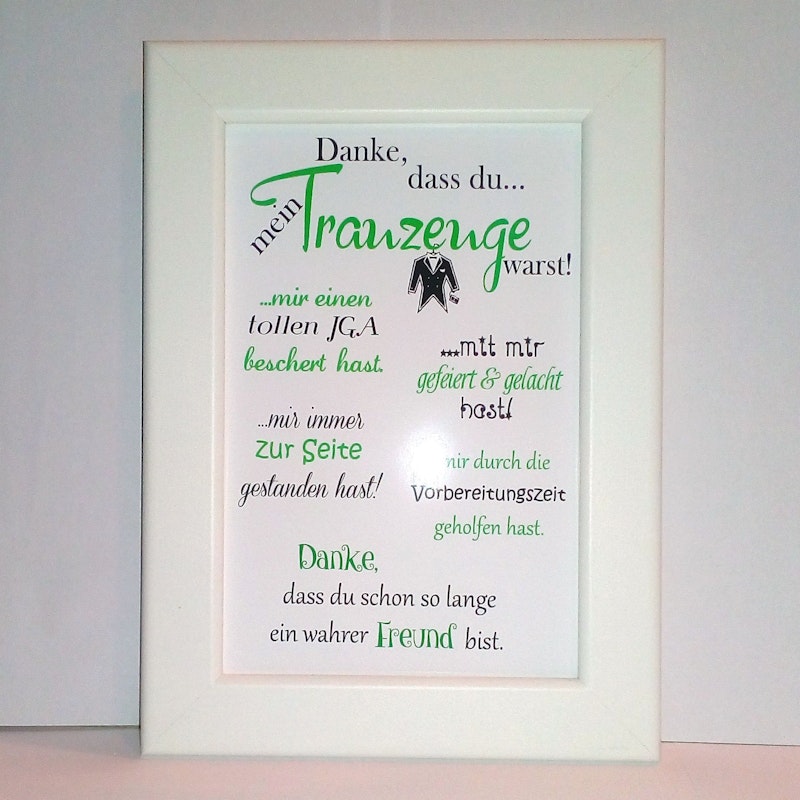 Danke,
dass du...
mein Trauzeuge
warst!
...mir einen
tollen JGA
beschert hast.
...mit mir
gefeiert & gelacht
hast!
...mir immer
zur Seite
gestanden hast!
mir durch die
Vorbereitungszeit
geholfen hast.
Danke,
dass du schon so lange
ein wahrer Freund bist.